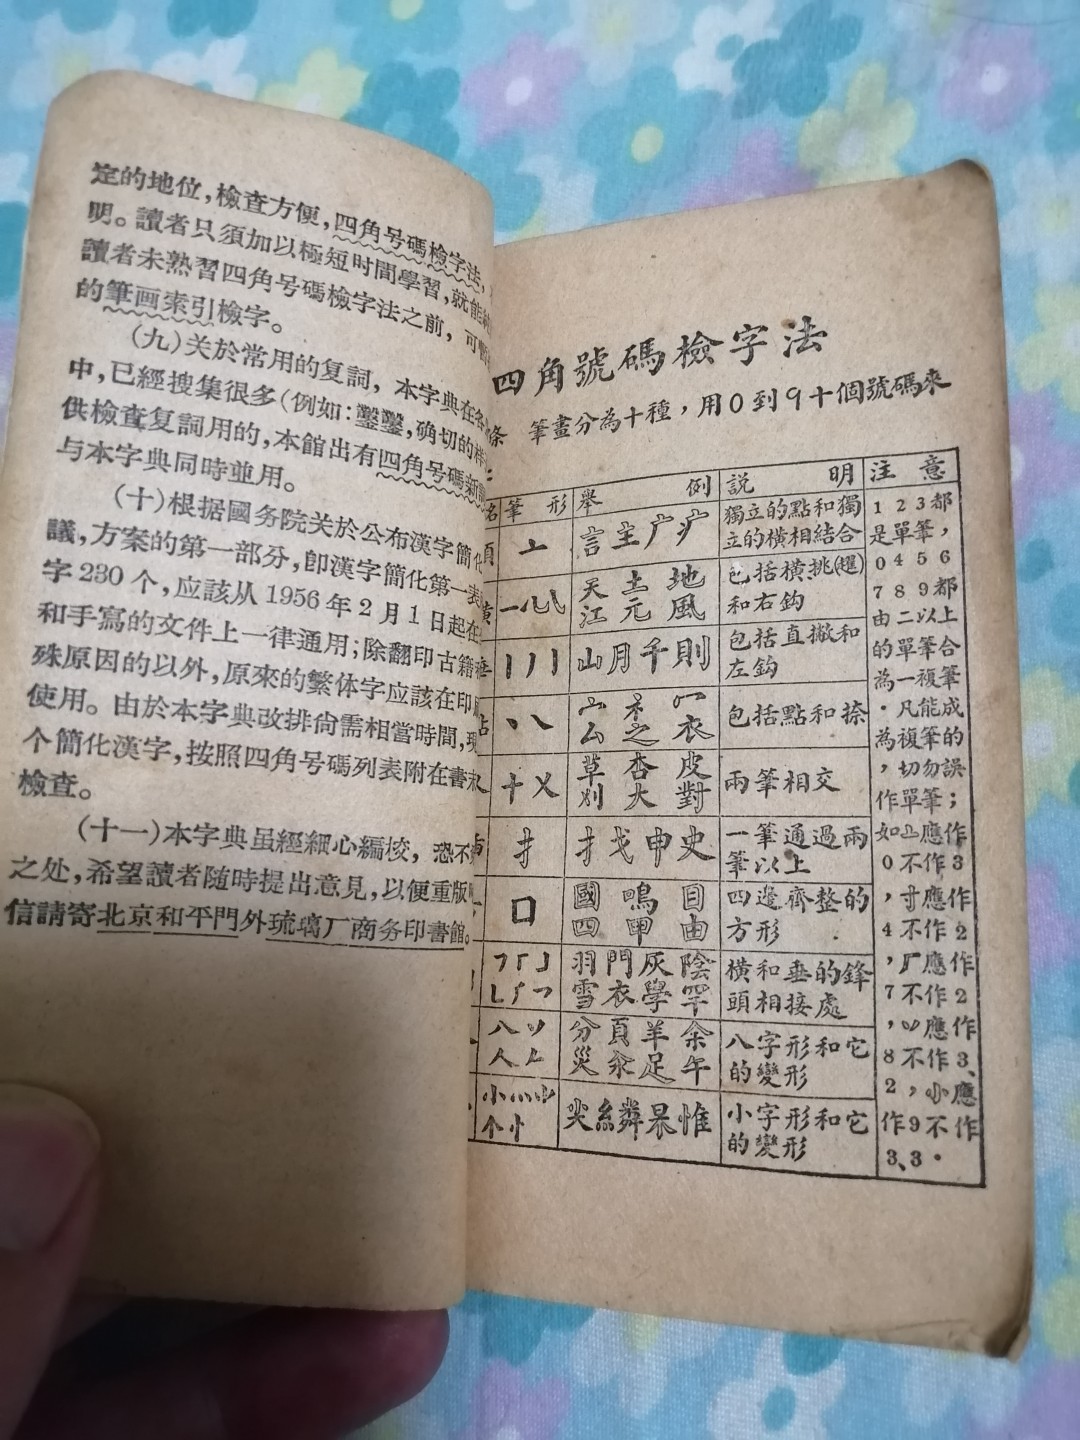 定的地位，檢查方便，四角号碼檢字法，
明。讀者只須加以極短时間學習，就能
讀者未熟習四角号碼檢字法之前，可暫
的筆画索引檢字。
(九)关於常用的复詞，本字典在各
中，已經搜集很多(例如：鑿鑿，确切的样
供檢查复詞用的，本館出有四角号碼新
与本字典同時並用。
(十)根据國务院关於公布漢字簡化
議，方案的第一部分，卽漢字簡化第一表
字230个，应該从1956年2月1日起在
和手寫的文件上一律通用；除翻印古籍
殊原因的以外，原來的繁体字应該在印
使用。由於本字典改排尙需相當時間，現
个簡化漢字，按照四角号碼列表附在書末
檢查。
(十一)本字典虽經細心編校，恐不
之处，希望讀者随時提出意見，以便重版
信請寄北京和平門外琉璃厂商务印書館。
四角號碼檢字法
條 筆畫分為十種，用0到9十個號碼來
名 筆形 舉例 説明 注意
頭 亠 言主广疒 獨立的點和獨立的橫相結合
一 天土地江元風 包括橫挑(趯)和右鈎
丨丿亅 山月千則 包括直撇和左鈎
丶㇏ 宀衤冖厶之衣 包括點和捺
十乂 草杏皮刈大對 兩筆相交
扌 扌戈申史 一筆通過兩筆以上
口 國鳴目四甲由 四邊齊整的方形
羽門灰陰雪衣學罕 橫和垂的鋒頭相接處
八 分頁羊余災汆足午 八字形和它的變形
小 尖糸粦杲惟 小字形和它的變形
1 2 3 都
是單筆，
0 4 5 6
7 8 9 都
由二以上
的單筆合
為一複筆
。凡能成
為複筆的
，切勿誤
作單筆；
如亠應作
0不作3
，寸應作
4不作2
，厂應作
7不作2
，丷應作
8不作3、
2，小應
作9不作
3、3。